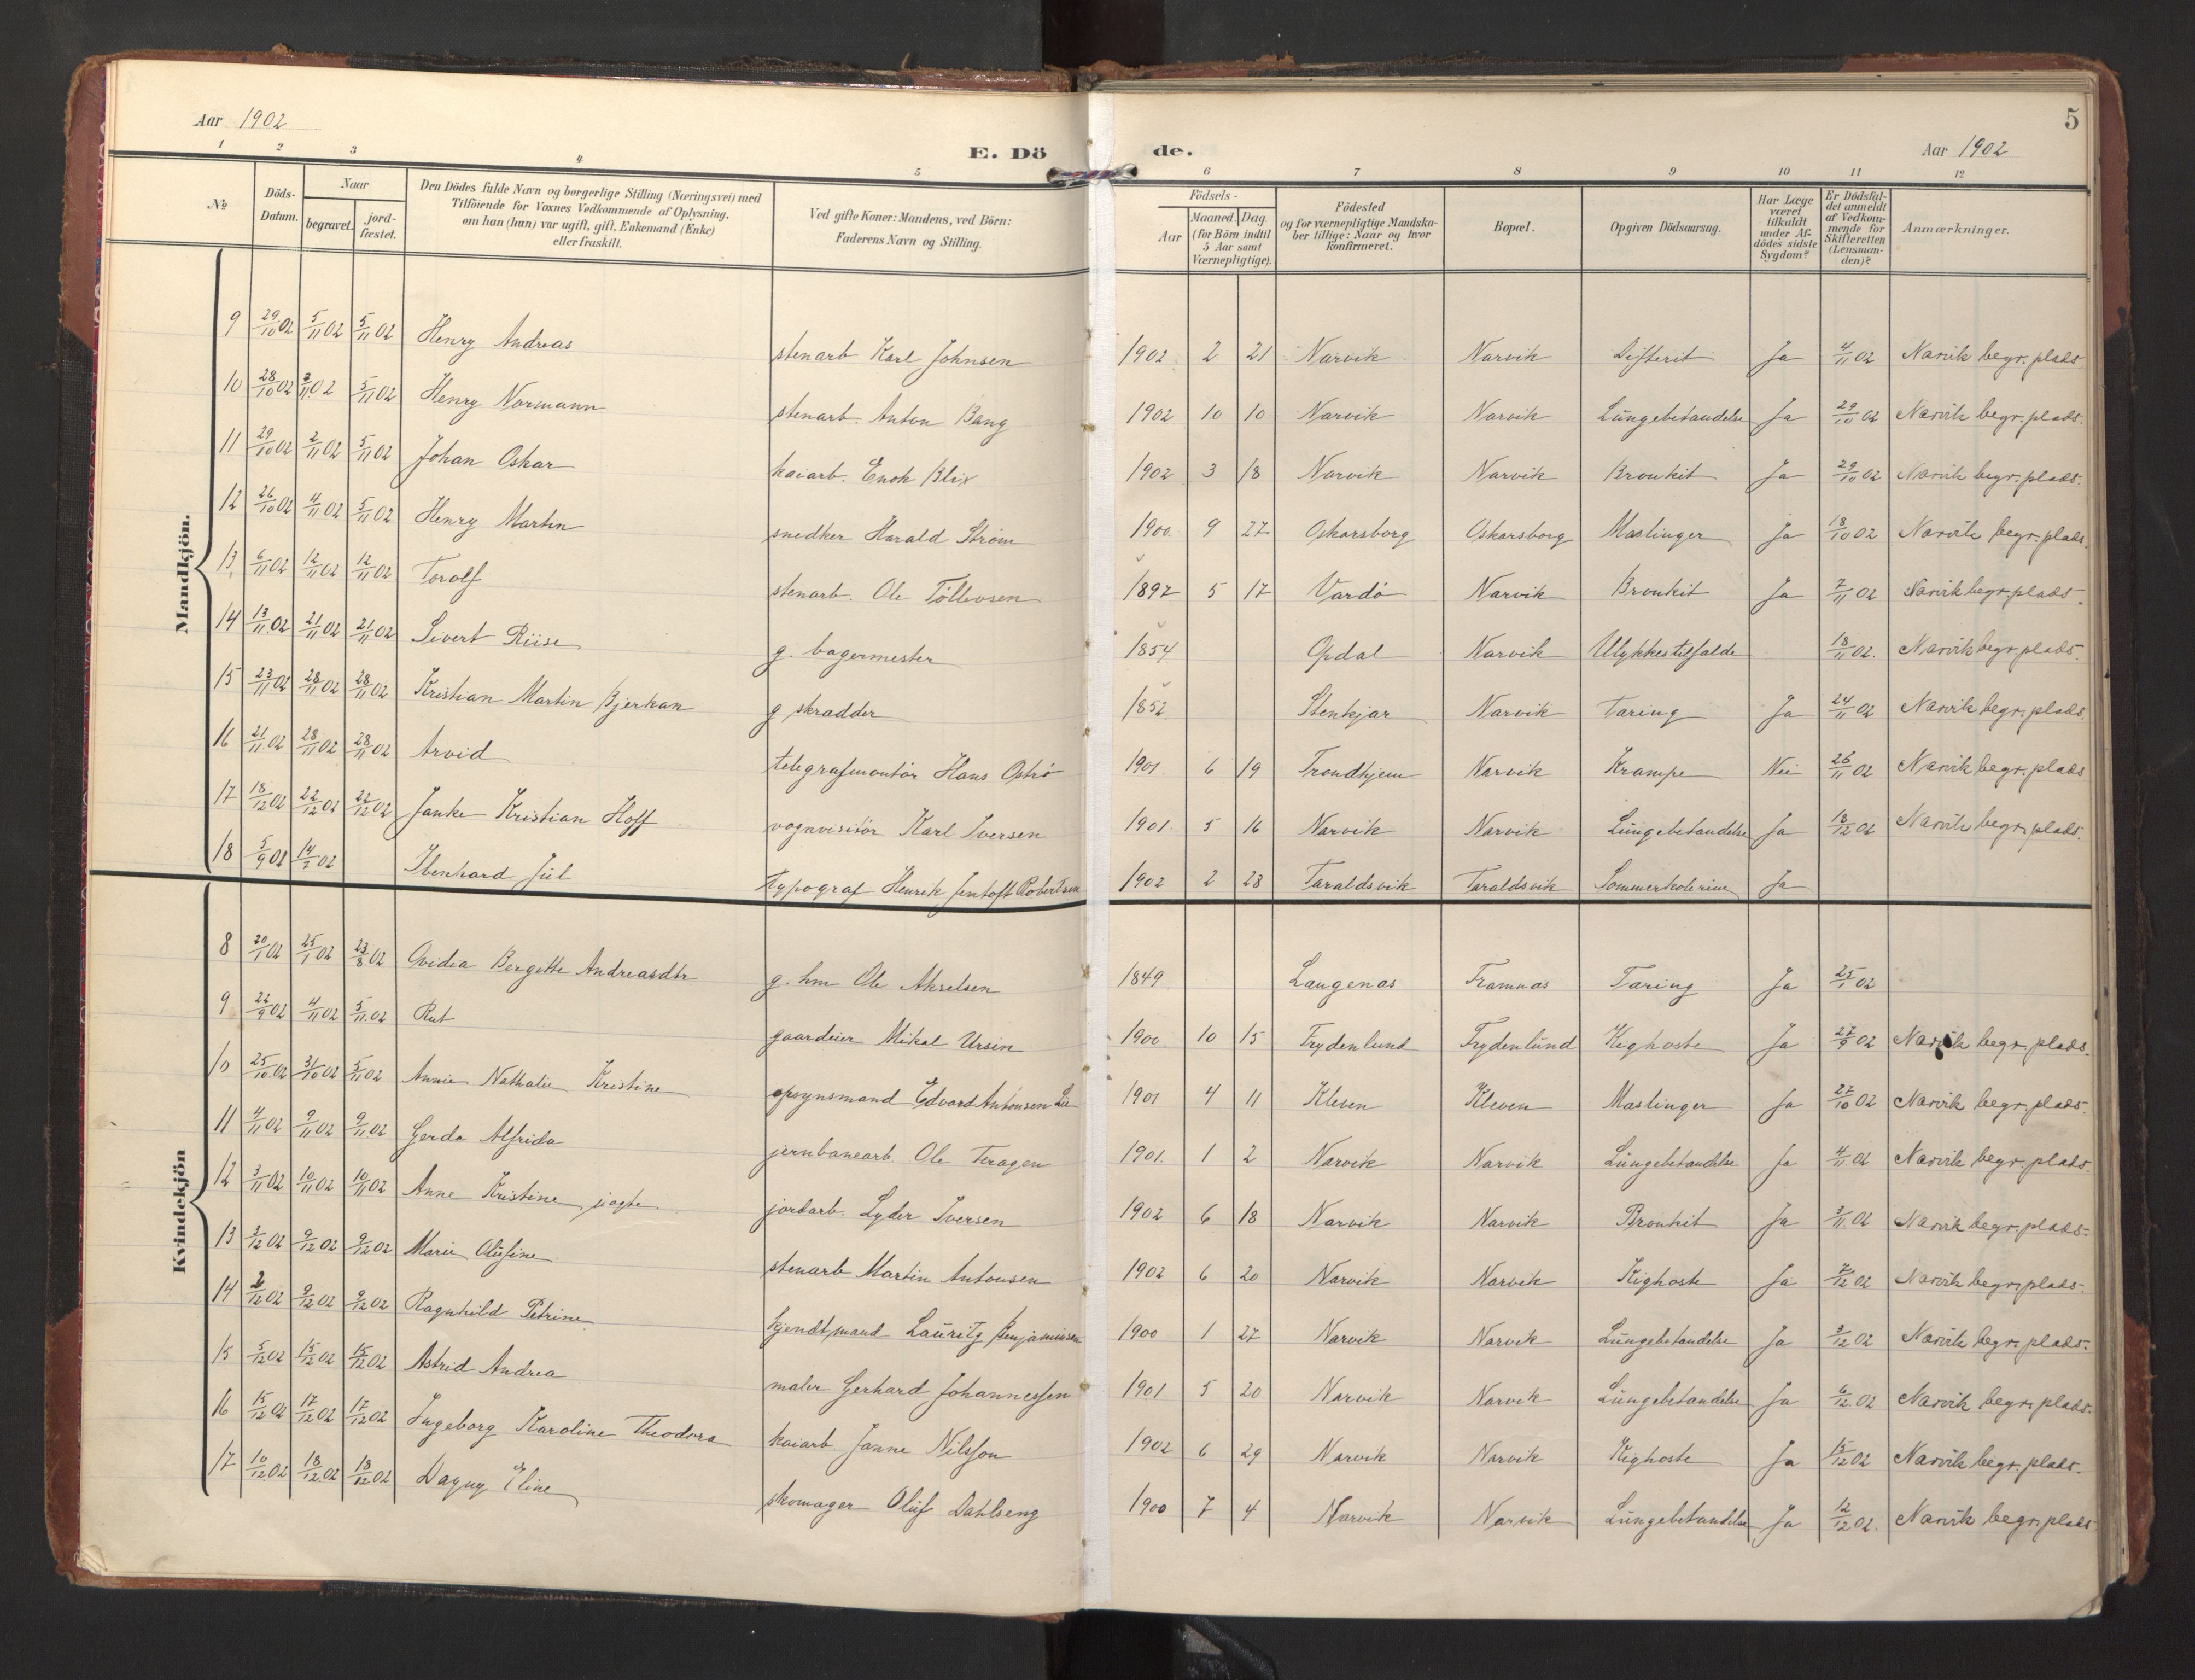 Aar 1902
E. Dö
de.
5
Aar 1902
1 2 3 4 5 6 7 8 9 10 11 12
No
Döds-Datum.
Naar
begravet.
jord-fæstet.
Den Dödes fulde Navn og borgerlige Stilling (Næringsvei) med
Tilföiende for Voxnes Vedkommende af Oplysning,
om han (hun) var ugift, gift, Enkemand (Enke)
eller fraskilt.
Ved gifte Koner: Mandens, ved Börn:
Faderens Navn og Stilling.
Födsels-
Aar
Maaned. Dag.
(for Börn indtil
5 Aar samt
Værnepligtige).
Födested
og for værnepligtige Mandska-
ber tillige: Naar og hvor
Konfirmeret.
Bopæl.
Opgiven Dödsaarsag.
Har Læge
været
tilkaldt
under Af-
dödes sidste
Sygdom?
Er Dödsfal-
det anmeldt
af Vedkom-
mende for
Skifteretten
(Lensman-
den)?
Anmærkninger.
Mandkjön.
9 29/10 02 5/11 02 5/11 02 Henry Andreas stenarb Karl Johnsen 1902 2 21 Narvik Narvik Difterit Ja 4/11 02 Narvik begr. plads
10 28/10 02 2/11 02 5/11 02 Henry Normann stenarb. Anton Bang 1902 10 10 Narvik Narvik Lungebetændelse Ja 29/10 02 Narvik begr. plads.
11 29/10 02 2/11 02 5/11 02 Johan Oskar kaiarb. Enok Blix 1902 3 18 Narvik Narvik Bronkit Ja 29/10 02 Narvik begr. plads.
12 26/10 02 4/11 02 5/11 02 Henry Martin snedker Harald Strøm 1900 9 27 Oskarsborg Oskarsborg Mæslinger Ja 18/10 02 Narvik begr. plads.
13 6/11 02 12/11 02 12/11 02 Torolf stenarb. Ole Tollevsen 1897 5 17 Vardö Narvik Bronkit Ja 7/11 02 Narvik begr. plads.
14 13/11 02 21/11 02 21/11 02 Sivert Riise g. bagermester 1854 Opdal Narvik Ulykkestilfælde 18/11 02. Narvik begr. plads.
15 23/11 02 28/11 02 28/11 02 Kristian Martin Bjerkan g skrædder 1852 Stenkjær Narvik Tæring Ja 24/11 02 Narvik begr. plads.
16 21/11 02 28/11 02 28/11 02 Arvid telegrafmontör Hans Oströ 1901 6 19 Trondhjem Narvik Krampe Nei 26/11 02 Narvik begr. plads
17 18/12 02 22/12 02 22/12 02 Janke Kristian Hoff vognvisitör Karl Iversen 1901. 5 16 Narvik Narvik Lungebetændelse Ja 18/12 02 Narvik begr. plads.
18 5/9 02 02 Juel typograf Henrik Jentoft Robertsen 1902 2 28 Taraldsvik Taraldsvik Sommerkolerine Ja
Kvindekjön
8 20/1 02 25/1 02 23/8 02 Ovidia Bergitte Andreasdtr g. hm Ole Akselsen 1849 Langenæs Framnæs Tæring Ja 25/1 02
9 22/9 02 4/11 02 5/11 02 Rut gaardeier Mikal Ursin 1900. 10 15 Frydenlund Frydenlund Kighoste Ja 27/9 02 Narvik begr. plads.
10 25/10 02 31/10 02 5/11 02 Annie Nathalie Kristine opsynsmand Edvard Antonsen Lie 1901 4 11 Kleven Kleven Mæslinger Ja 27/10 02 Narvik begr. plads.
11 4/11 02 9/11 02 9/11 02 Gerda Alfrida jernbanearb. Ole Teragen 1901. 1 2 Narvik Narvik Lungebetændelse Ja 4/11 02 Narvik begr. plads.
12 3/11 02 10/11 02 10/11 02 Anne Kristine jordarb. Lyder Iversen 1902 6 18 Narvik Narvik Bronkit Ja 3/11 02 Narvik begr. plads.
13 3/12 02 9/12 02 9/12 02 Marie Olufine stenarb Martin Antonsen 1902 6 20 Narvik Narvik Kighoste Ja 7/12 02 Narvik begr. plads.
14 2/12 02 9/12 02 9/12 02 Ragnhild Petrine kjendtmand Lauritz Benjaminsen 1900 1 27 Narvik Narvik Lungebetændelse Ja 3/12 02 Narvik begr. plads.
15 5/12 02 15/12 02 15/12 02 Astrid Andrea maler Gerhard Johannessen 1901 5 20 Narvik Narvik Lungebetændelse Ja 6/12 02 Narvik begr. plads.
16 15/12 02 17/12 02 17/12 02 Ingeborg Karoline Theodora kaiarb Janne Nilsson 1902 6 29 Narvik Narvik Kighoste Ja 15/12 02 Narvik begr. plads.
17 10/12 02 18/12 02 18/12 02 Dagny Eline skomager Oluf Dahlseng 1900 7 4 Narvik Narvik Lungebetændelse Ja 12/12 02. Narvik begr. plads